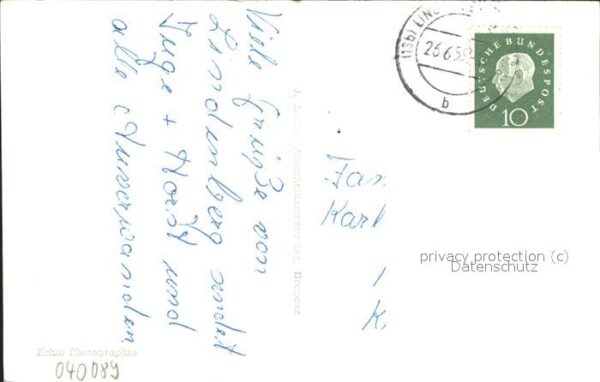 Viele Grüße von
Lindenberg sendet
Inge + Horst und
alle Anverwanden
Fam
Karl
K
(13b) LIN
26.6.59
b
DEUTSCHE BUNDESPOST
10
privacy protection (c)
Datenschutz
Ansichtskartenverlag, Bregenz
Echte Photographie
040089